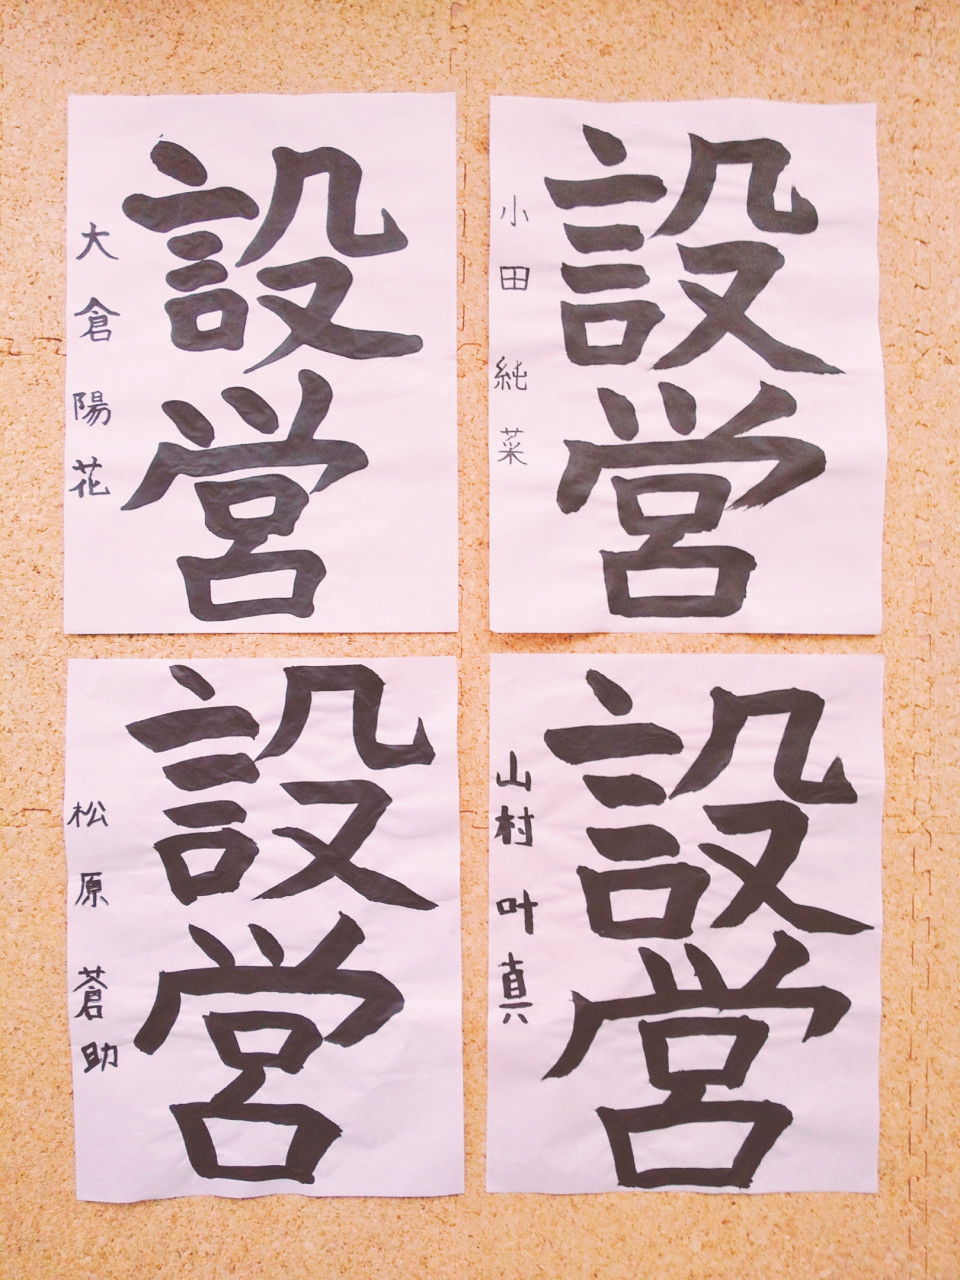 設営
大倉陽花
設営
小田純菜
設営
松原蒼助
設営
山村叶真